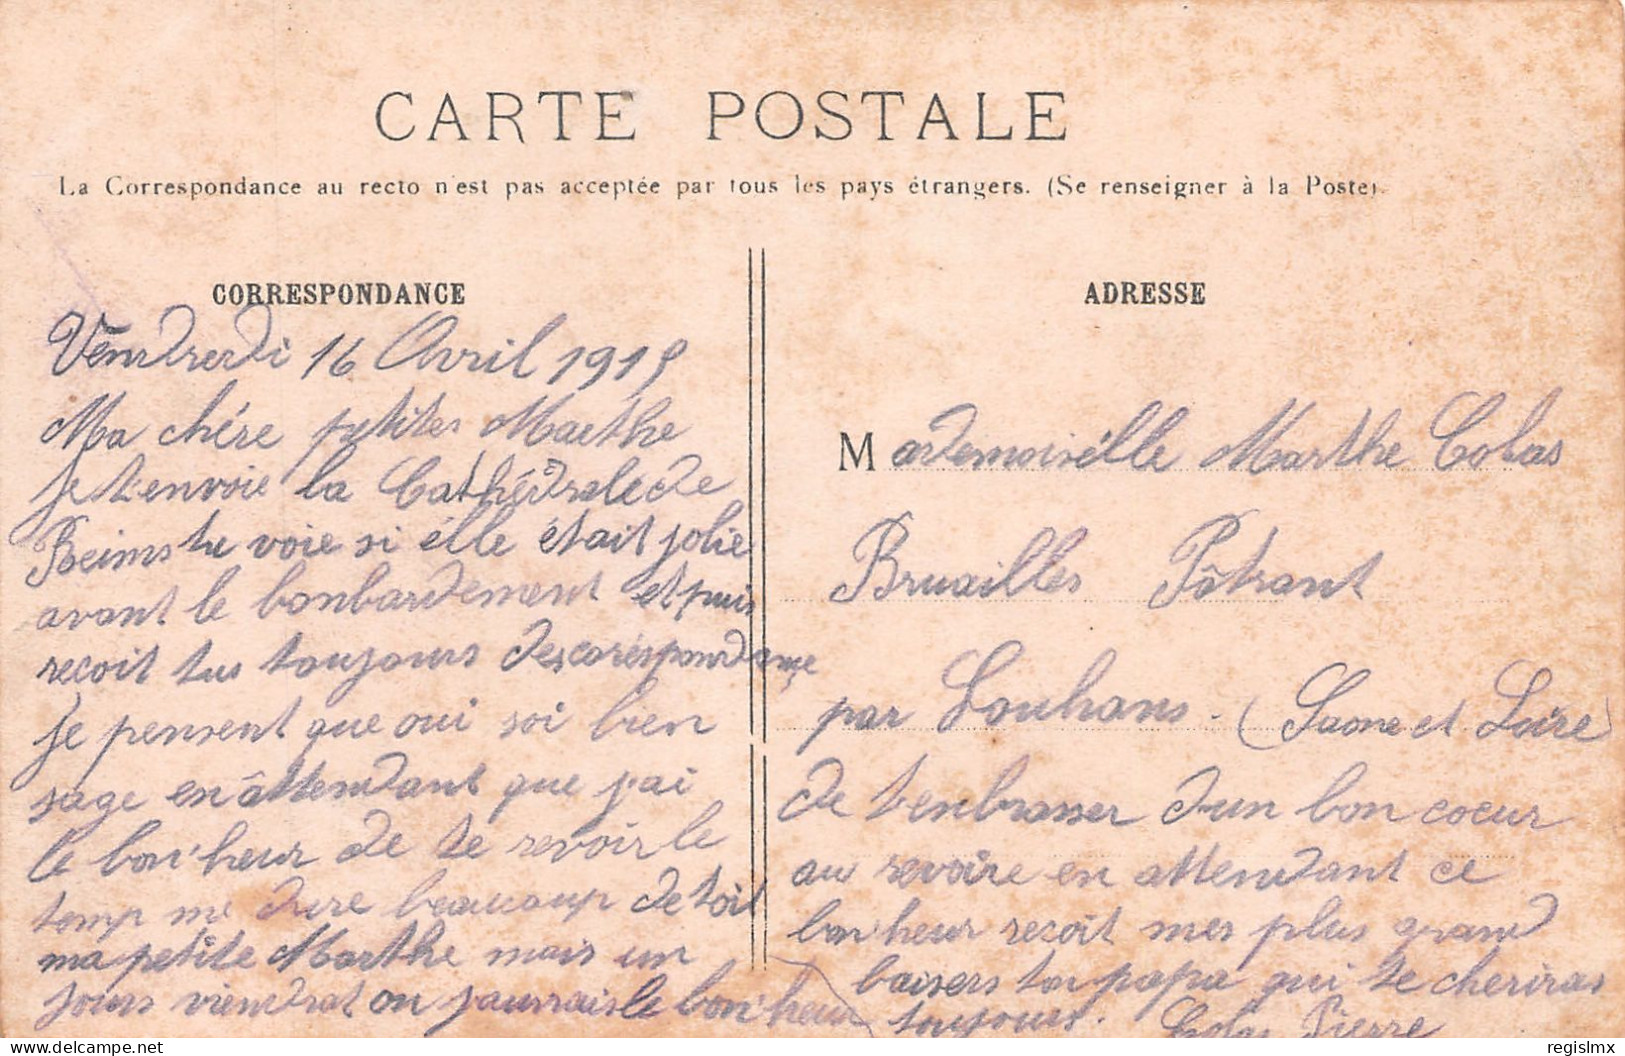 CARTE POSTALE
La Correspondance au recto n'est pas acceptée par tous les pays étrangers. (Se renseigner à la Poste).
CORRESPONDANCE
Vendredi 16 Avril 1915
Ma chére petites Marthe
je t'envoie la Cathédrale de
Reims tu voie si élle était jolie
avant le bonbardement et puis
recoit tus toujours des corespondance
je pensent que oui soi bien
sage en attendant que j'ai
le bon'heur de te revoir le
temp me dure beaucoup de toit
ma petite Marthe mais un
jours viendrat ou j'aurrais le bon'heur
ADRESSE
Mademoisélle Marthe Colas
Bruailles Pôtrant
par Louhans. (Saone et Loire)
de t'enbrasser d'un bon coeur
au revoire en attendant ce
bon'heur recoit mes plus grand
baisers ton papa qui te cheriras
toujours. Colas Pierre
regislmx